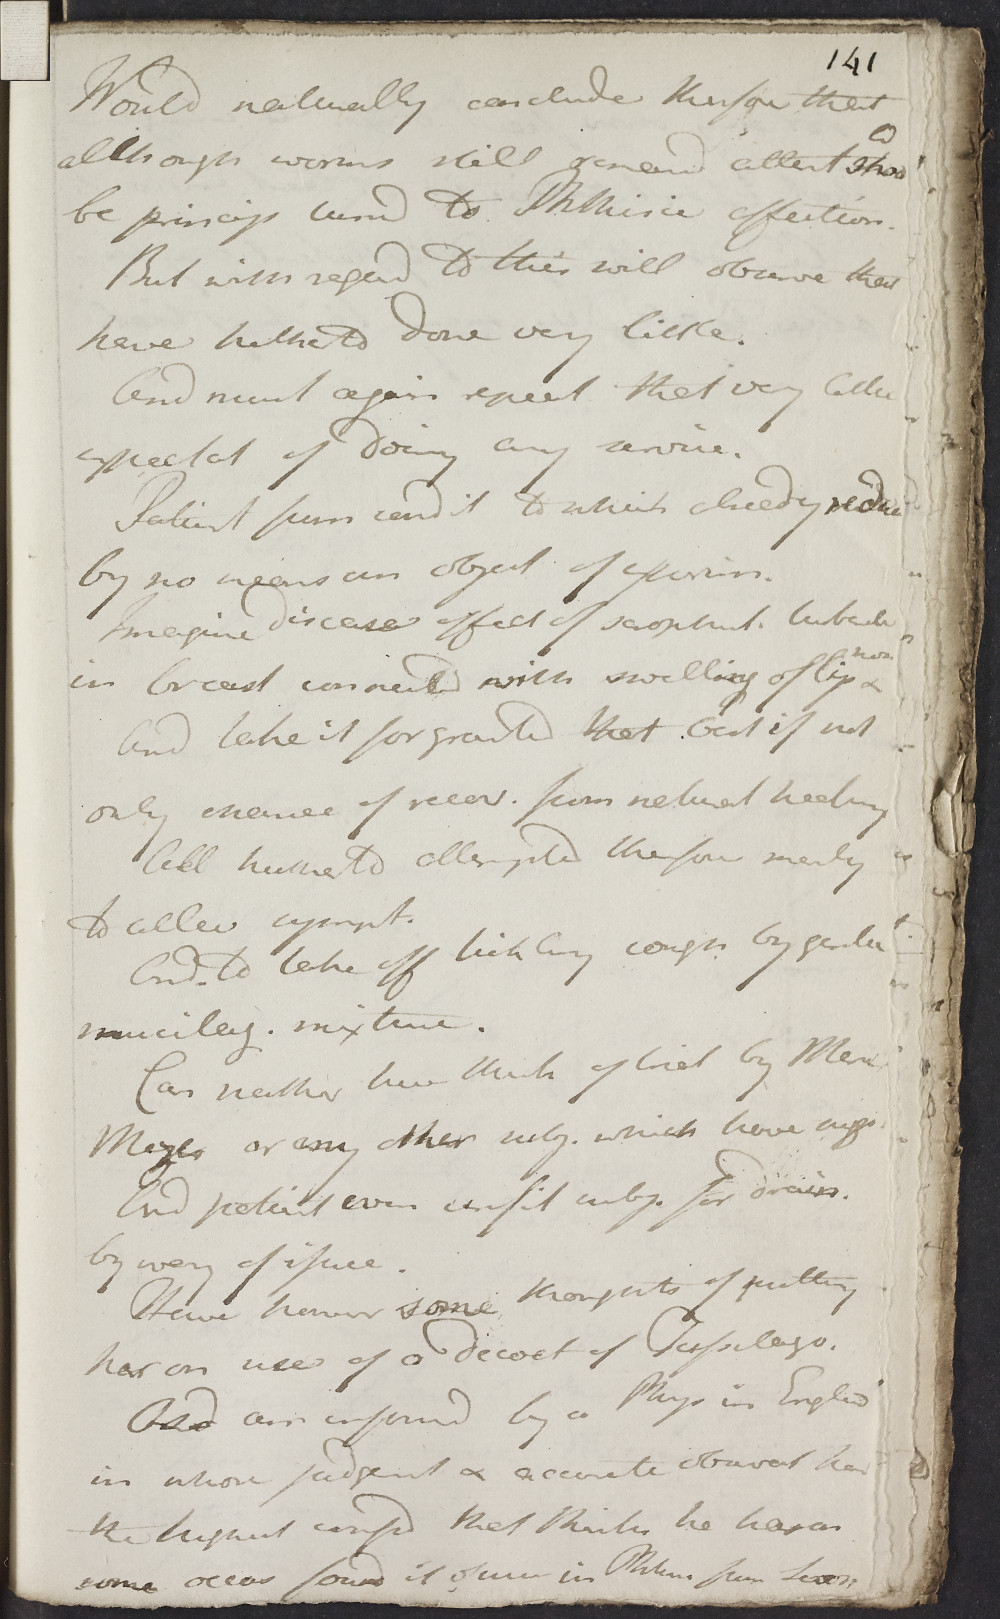 141
Would naturally conclude therefore that
although worms still remaind attent shod
be princip turnd to Phthisic affection.
But with regard to this will observe that
have hitherto done very little.
And must again repeat that very little
expectat of doing any service.
Patient from condit to which already reducd
by no means an object of experim.
Imagine disease effect of scrophul. tubercle
in breast connected with swelling of lip &
nose
And take it for granted that best if not
only chance of recov. from natural healing
All hitherto attempted therefore merely
to allev sympt.
And to take off tickling cough by gentle
mucilag. mixture.
Can neither here think of trial by Mercur
or any other subj. which have
And patient even unfit subj. for drain.
by way of issue.
Have however some thoughts of putting
her on use of a decoct of Tussilago.
And am informd by a Phys in England
in whose judgment & accurate observat have
the highest confid that thinks he has on
some occas found it of use in Phthis from